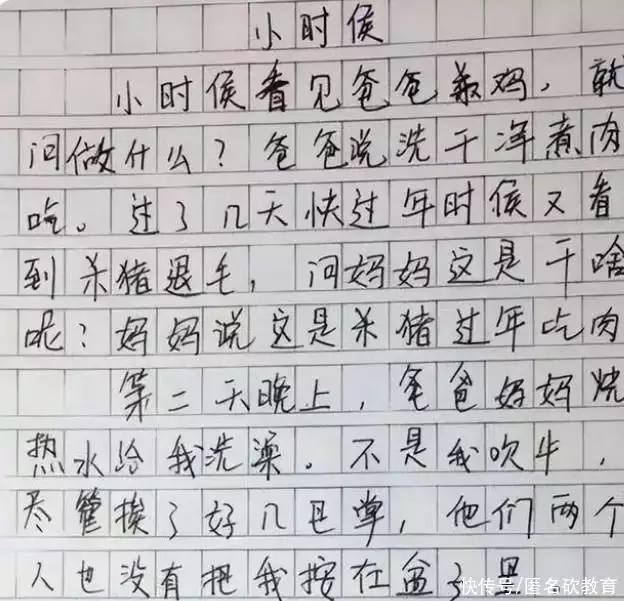 小时侯
小时侯看见爸爸杀鸡，就
问做什么？爸爸说洗干净煮肉
吃。过了几天快过年时侯又看
到杀猪退毛，问妈妈这是干啥
呢？妈妈说这是杀猪过年吃肉
第二天晚上，爸爸妈妈烧
热水给我洗澡。不是我吹牛，
尽管挨了好几巴掌，他们两个
人也没有把我按在盆子里
快传号/匿名砍教育